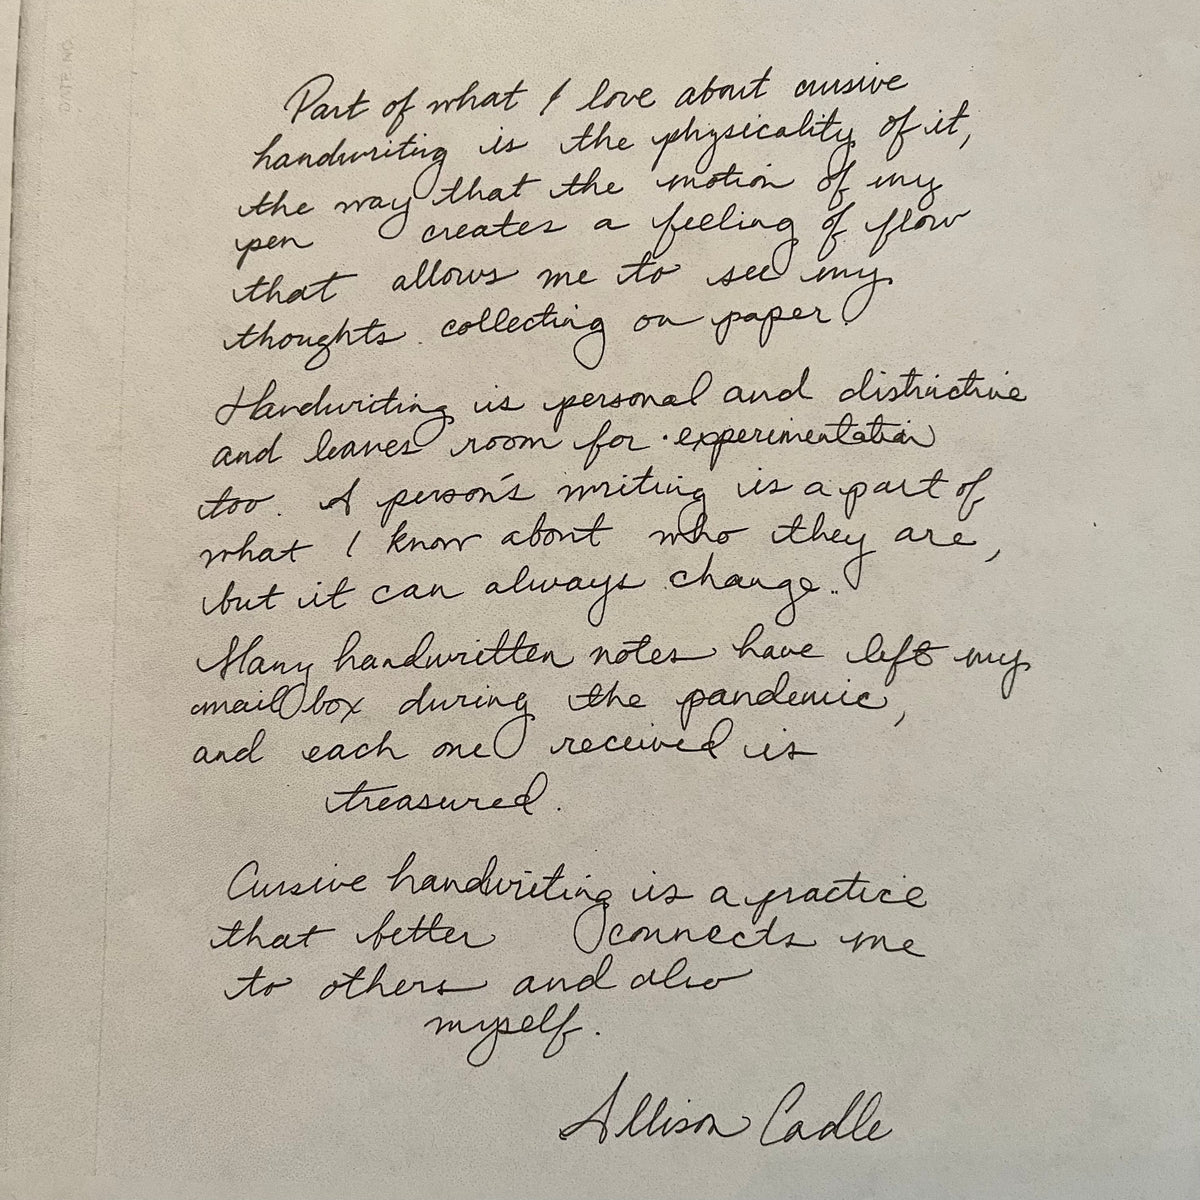 DATE NO.
Part of what I love about cursive
handwriting is the physicality of it,
the way that the motion of my
pen creates a feeling of flow
that allows me to see my
thoughts collecting on paper.
Handwriting is personal and distinctive
and leaves room for experimentation
too. A person's writing is a part of
what I know about who they are,
but it can always change..
Many handwritten notes have left my
mailbox during the pandemic,
and each one received is
treasured.
Cursive handwriting is a practice
that better connects me
to others and also
myself.
Allison Cadle